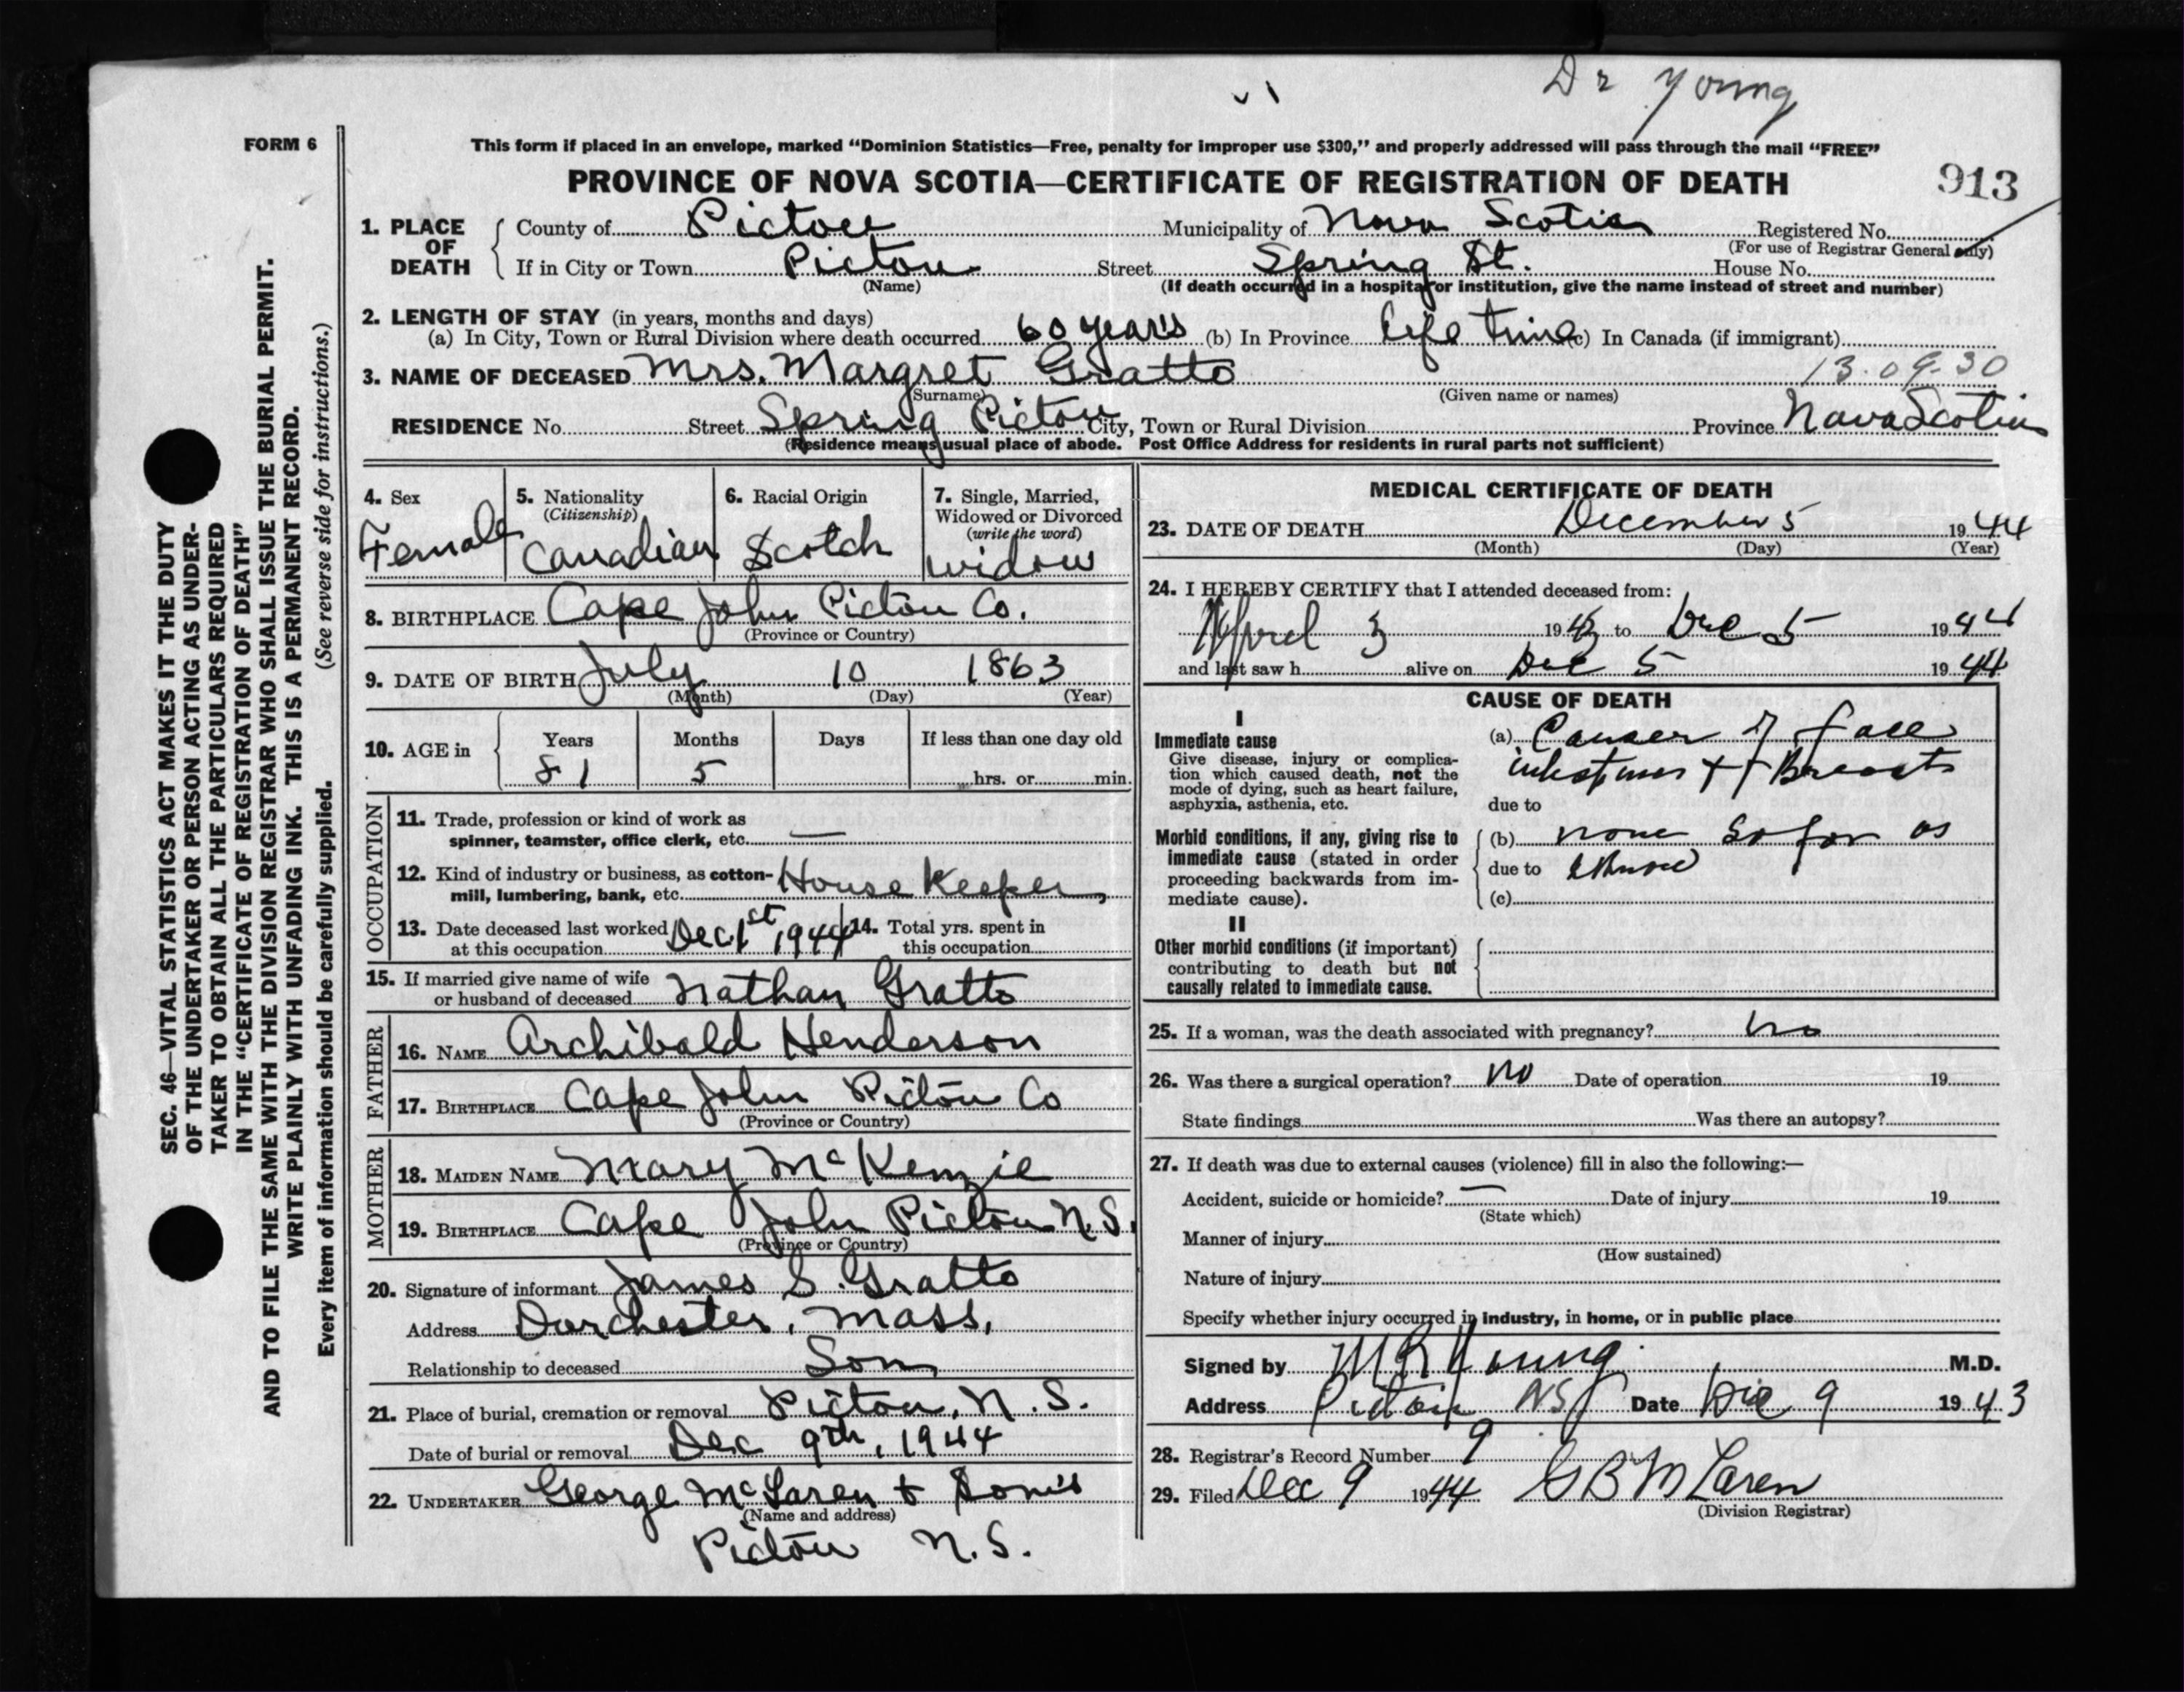 Dr Young
FORM 6
This form if placed in an envelope, marked "Dominion Statistics—Free, penalty for improper use $300," and properly addressed will pass through the mail "FREE"
PROVINCE OF NOVA SCOTIA—CERTIFICATE OF REGISTRATION OF DEATH
913
1. PLACE OF DEATH
County of Pictou Municipality of Nova Scotia Registered No.
(For use of Registrar General only)
If in City or Town Pictou Street Spring St. House No.
(Name) (If death occurred in a hospital or institution, give the name instead of street and number)
2. LENGTH OF STAY (in years, months and days)
(a) In City, Town or Rural Division where death occurred 60 years (b) In Province life time (c) In Canada (if immigrant)
13.09.30
3. NAME OF DECEASED Mrs. Margret Gratto
(Surname) (Given name or names)
RESIDENCE No. Street Spring Pictou City, Town or Rural Division Province Nova Scotia
(Residence means usual place of abode. Post Office Address for residents in rural parts not sufficient)
SEC. 46—VITAL STATISTICS ACT MAKES IT THE DUTY
OF THE UNDERTAKER OR PERSON ACTING AS UNDER-
TAKER TO OBTAIN ALL THE PARTICULARS REQUIRED
IN THE "CERTIFICATE OF REGISTRATION OF DEATH"
AND TO FILE THE SAME WITH THE DIVISION REGISTRAR WHO SHALL ISSUE THE BURIAL PERMIT.
WRITE PLAINLY WITH UNFADING INK. THIS IS A PERMANENT RECORD.
Every item of information should be carefully supplied. (See reverse side for instructions.)
4. Sex Female
5. Nationality (Citizenship) Canadian
6. Racial Origin Scotch
7. Single, Married, Widowed or Divorced (write the word) widow
8. BIRTHPLACE Cape John Pictou Co.
(Province or Country)
9. DATE OF BIRTH July 10 1863
(Month) (Day) (Year)
10. AGE in Years Months Days If less than one day old
81 5 hrs. or min.
OCCUPATION
11. Trade, profession or kind of work as
spinner, teamster, office clerk, etc. —
12. Kind of industry or business, as cotton-
mill, lumbering, bank, etc. House Keeper
13. Date deceased last worked
at this occupation Dec 1st 1944
14. Total yrs. spent in
this occupation
15. If married give name of wife
or husband of deceased Nathan Gratto
FATHER
16. NAME Archibald Henderson
17. BIRTHPLACE Cape John Pictou Co
(Province or Country)
MOTHER
18. MAIDEN NAME Mary McKenzie
19. BIRTHPLACE Cape John Pictou N.S.
(Province or Country)
20. Signature of informant James S. Gratto
Address Dorchester, Mass,
Relationship to deceased Son
21. Place of burial, cremation or removal Pictou, N.S.
Date of burial or removal Dec 9th, 1944
22. UNDERTAKER George McLaren + Son's
(Name and address)
Pictou N.S.
MEDICAL CERTIFICATE OF DEATH
23. DATE OF DEATH December 5 1944
(Month) (Day) (Year)
24. I HEREBY CERTIFY that I attended deceased from:
April 3 1943 to Dec 5 1944
and last saw h alive on Dec 5 1944
CAUSE OF DEATH
I
Immediate cause
Give disease, injury or complica-
tion which caused death, not the
mode of dying, such as heart failure,
asphyxia, asthenia, etc.
(a) Cancer of face
intestines + of Breasts
due to
Morbid conditions, if any, giving rise to
immediate cause (stated in order
proceeding backwards from im-
mediate cause).
(b) none so far as
due to
(c)
II
Other morbid conditions (if important)
contributing to death but not
causally related to immediate cause.
25. If a woman, was the death associated with pregnancy? no
26. Was there a surgical operation? no Date of operation 19
State findings Was there an autopsy?
27. If death was due to external causes (violence) fill in also the following:—
Accident, suicide or homicide? — Date of injury 19
(State which)
Manner of injury
(How sustained)
Nature of injury
Specify whether injury occurred in industry, in home, or in public place
Signed by M R Young M.D.
Address Pictou NS Date Dec 9 1943
28. Registrar's Record Number 9
29. Filed Dec 9 1944 G B McLaren
(Division Registrar)